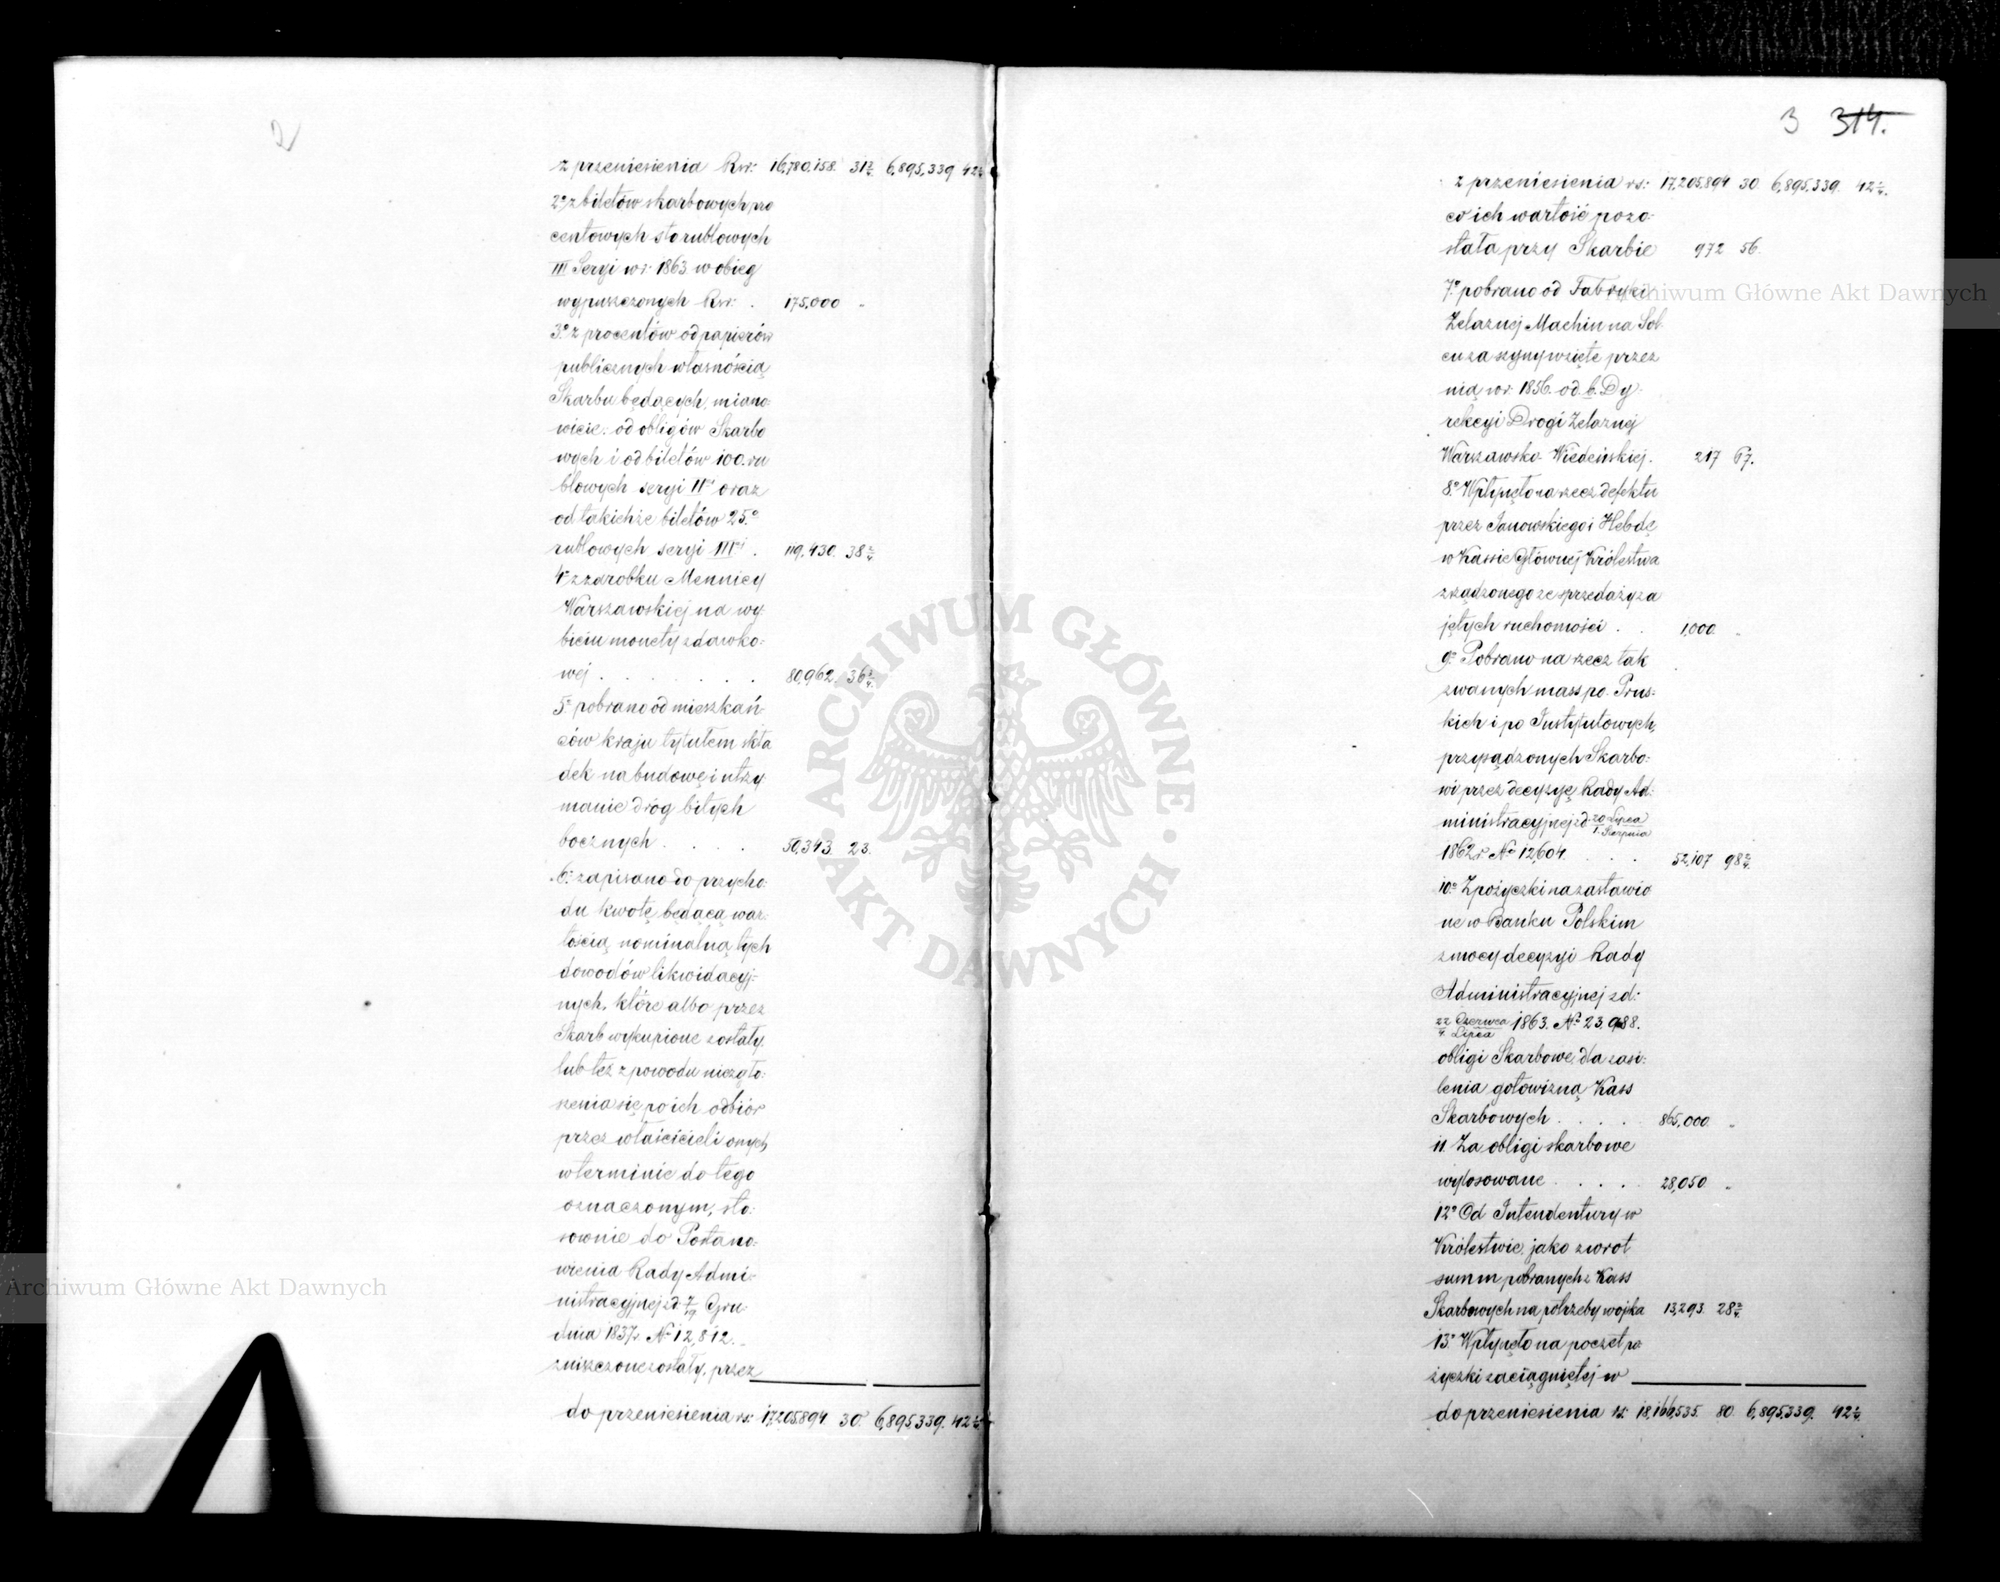 2
z przeniesienia Rsr: 16,780,158. 31 2/4. 6,895,339 42 2/4
2° z biletów skarbowych pro
centowych storublowych
III Seryi w r: 1863. w obieg
wypuszczonych Rsr: . 175,000 "
3° z procentów od papierów
publicznych własnością
Skarbu będących, miano=
wicie: od obligów Skarbo
wych i od biletów 100. ru
blowych seryi IIéj oraz
od takichże biletów 25.°
rublowych seryi IIIéj . 119,430. 38 2/4
4° z zarobku Mennicy
Warszawskiej na wy
biciu monety zdawko=
wej . . . . . . 80,962. 36 2/4.
5° pobrano od mieszkań
ców kraju tytułem skła
dek na budowę i utrzy
manie dróg bitych
bocznych . . . . 50,343. 23.
6° zapisano do przycho
du kwotę będącą war=
tością nominalną tych
dowodów likwidacyj=
nych, które albo przez
Skarb wykupione zostały
lub też z powodu niezgło=
szenia się po ich odbiór
przez właścicieli onych,
w terminie do tego
oznaczonym, sto=
sownie do Postano=
wienia Rady Admi=
nistracyjnej z d: 7/19 Gru=
dnia 1837r. N° 12,812. _
zniszczone zostały, przez
do przeniesienia rs: 17,205,894 30. 6,895,339. 42 2/4
3 314.
z przeniesienia rs: 17,205,894 30. 6,895,339. 42 2/4.
co ich wartość pozo=
stała przy Skarbie 972 56.
7° pobrano od Fabryki
Żelaznej Machin na Sol
cu za szyny wzięte przez
nią w r: 1856. od b. Dy=
rekcyi Drogi Żelaznej
Warszawsko-Wiedeńskiej. 217 67.
8° Wpłynęło na rzecz defektu
przez Janowskiego i Hebdę
w Kassie Głównej Królestwa
zrządzonego ze sprzedaży za
jętych ruchomości . . 1,000. "
9° Pobrano na rzecz tak
zwanych mass po Prus=
kich i po Instytutowych,
przysądzonych Skarbo=
wi przez decyzyę Rady Ad=
ministracyjnej z d: 20 Lipca / 1. Sierpnia
1862r. N° 12,604. . . . 52,107 98 2/4.
10° Z pożyczki na zastawio
ne w Banku Polskim
z mocy decyzyi Rady
Administracyjnej z d:
22 Czerwca / 4. Lipca 1863. N° 23,988.
obligi Skarbowe, dla zasi=
lenia gotowizną Kass
Skarbowych . . . . 865,000 "
11. Za obligi skarbowe
wylosowane . . . . 28,050 "
12° Od Intendentury w
Królestwie, jako zwrot
summ pobranych z Kass
Skarbowych na potrzeby wojska 13,293. 28 2/4.
13° Wpłynęło na poczet po=
życzki zaciągniętej w
do przeniesienia rs: 18,166,535. 80. 6,895,339. 42 2/4.
Archiwum Główne Akt Dawnych
Archiwum Główne Akt Dawnych
ARCHIWUM GŁÓWNE
AKT DAWNYCH